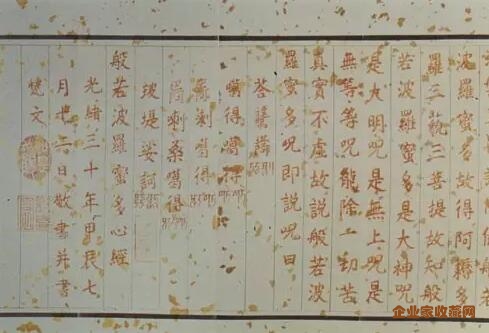 波羅蜜多故得阿耨多
羅三藐三菩提故知般
若波羅蜜多是大神咒
是大明咒是無上咒是
無等等咒能除一切苦
真實不虛故說般若波
羅蜜多咒即說咒曰
噶得噶得
喇噶得
喇桑噶得
玻堤娑訶
般若波羅蜜多心經
光緒三十年甲辰七
月廿六日敬書并書
梵文
企业家收藏网